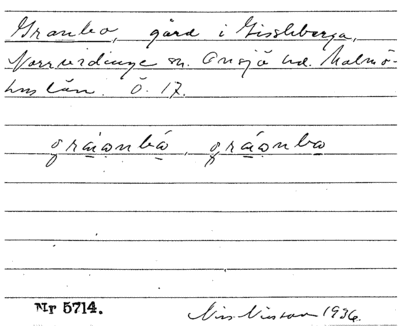 Granbo, gård i Gissleberga,
Norrvidinge sn. Onsjö hd. Malmö-
hus län. Ö. 17.
gráo̯nbó, gráo̯nbo
Nr 5714.
Nils Nilsson 1936.